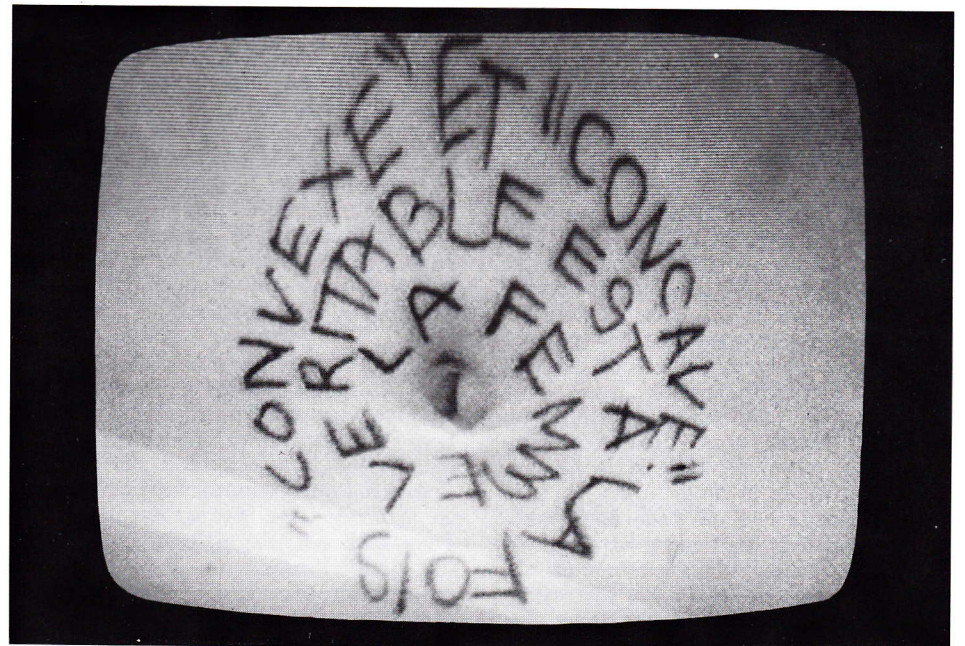 LA FEMME VERITABLE EST A LA FOIS "CONVEXE" ET "CONCAVE"